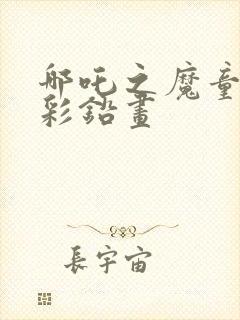 哪吒之魔童
彩鉛畫
長宇宙